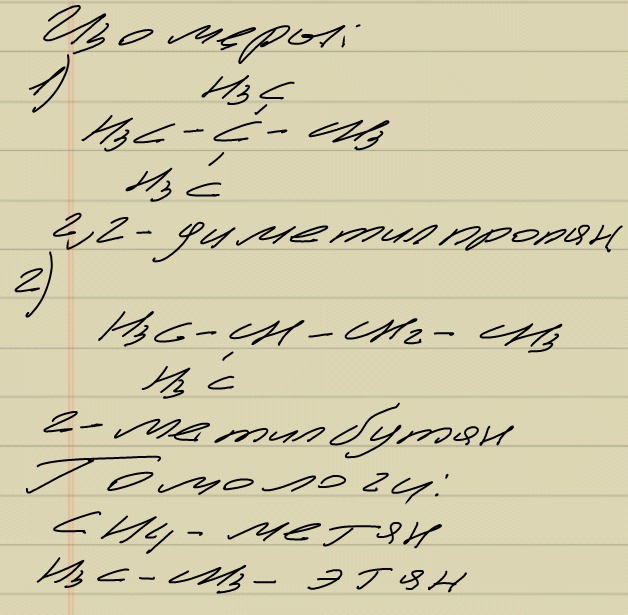 Изомеры:
1)
H3C
H3C - C - CH3
H3C
2,2- диметилпропан
2)
H3C - CH - CH2 - CH3
H3C
2- метилбутан
Гомологи:
CH4 - метан
H3C - CH3 - этан